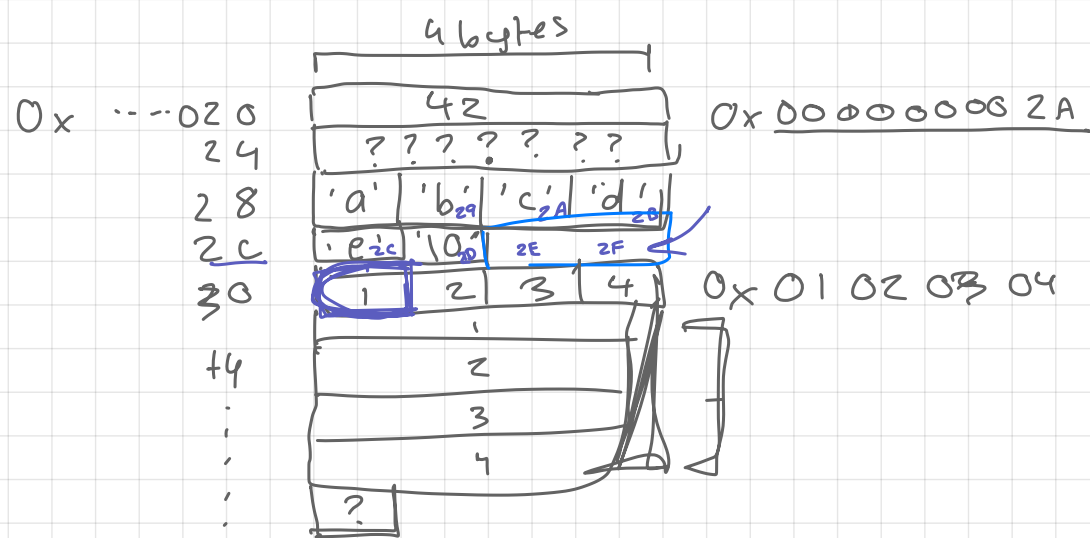 4 bytes
0x ....020 42 0x 00000000 2A
24 ? ? ? ? ? ? ?
28 'a' 'b' 29 'c' 2A 'd' 2B
2C 'e' 2C '\0' 2D 2E 2F
30 1 2 3 4 0x 01 02 03 04
1
+4 2
3
4
?